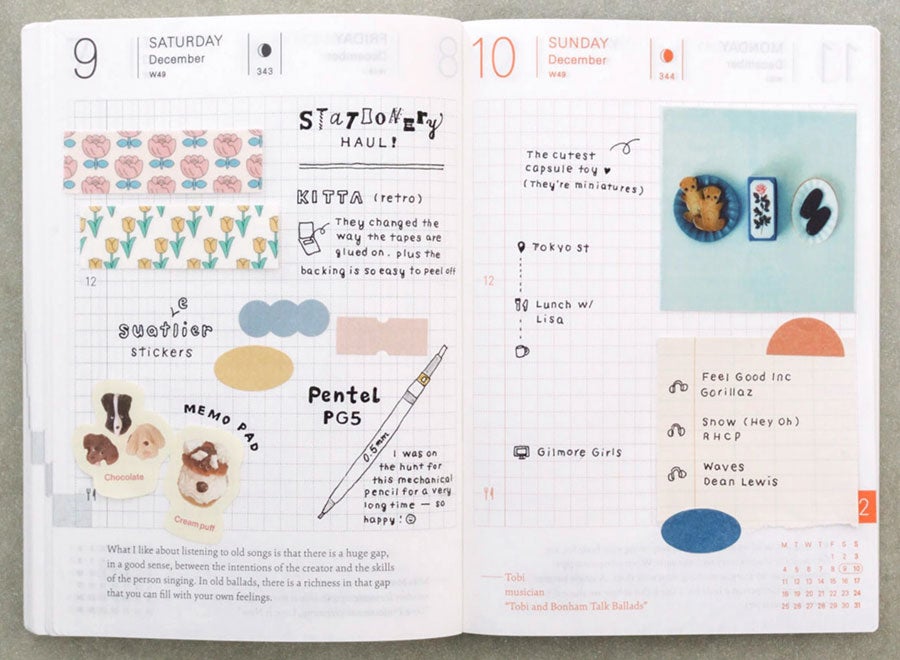 9
SATURDAY
December
W49
343
STATIONERY
HAUL!
KITTA (retro)
They changed the
way the tapes are
glued on. plus the
backing is so easy to peel off
12
e
suatlier
stickers
Pentel
PG5
0.5mm
I was on
the hunt for
this mechanical
pencil for a very
long time — so
happy!
MEMO PAD
Chocolate
Cream puff
What I like about listening to old songs is that there is a huge gap,
in a good sense, between the intentions of the creator and the skills
of the person singing. In old ballads, there is a richness in that gap
that you can fill with your own feelings.
10
SUNDAY
December
W49
344
The cutest
capsule toy ♥
(They're miniatures)
Tokyo St
12
Lunch w/
Lisa
Gilmore Girls
Feel Good Inc
Gorillaz
Snow (Hey Oh)
RHCP
Waves
Dean Lewis
2
Tobi
musician
"Tobi and Bonham Talk Ballads"
M T W T F S S
1 2 3
4 5 6 7 8 9 10
11 12 13 14 15 16 17
18 19 20 21 22 23 24
25 26 27 28 29 30 31